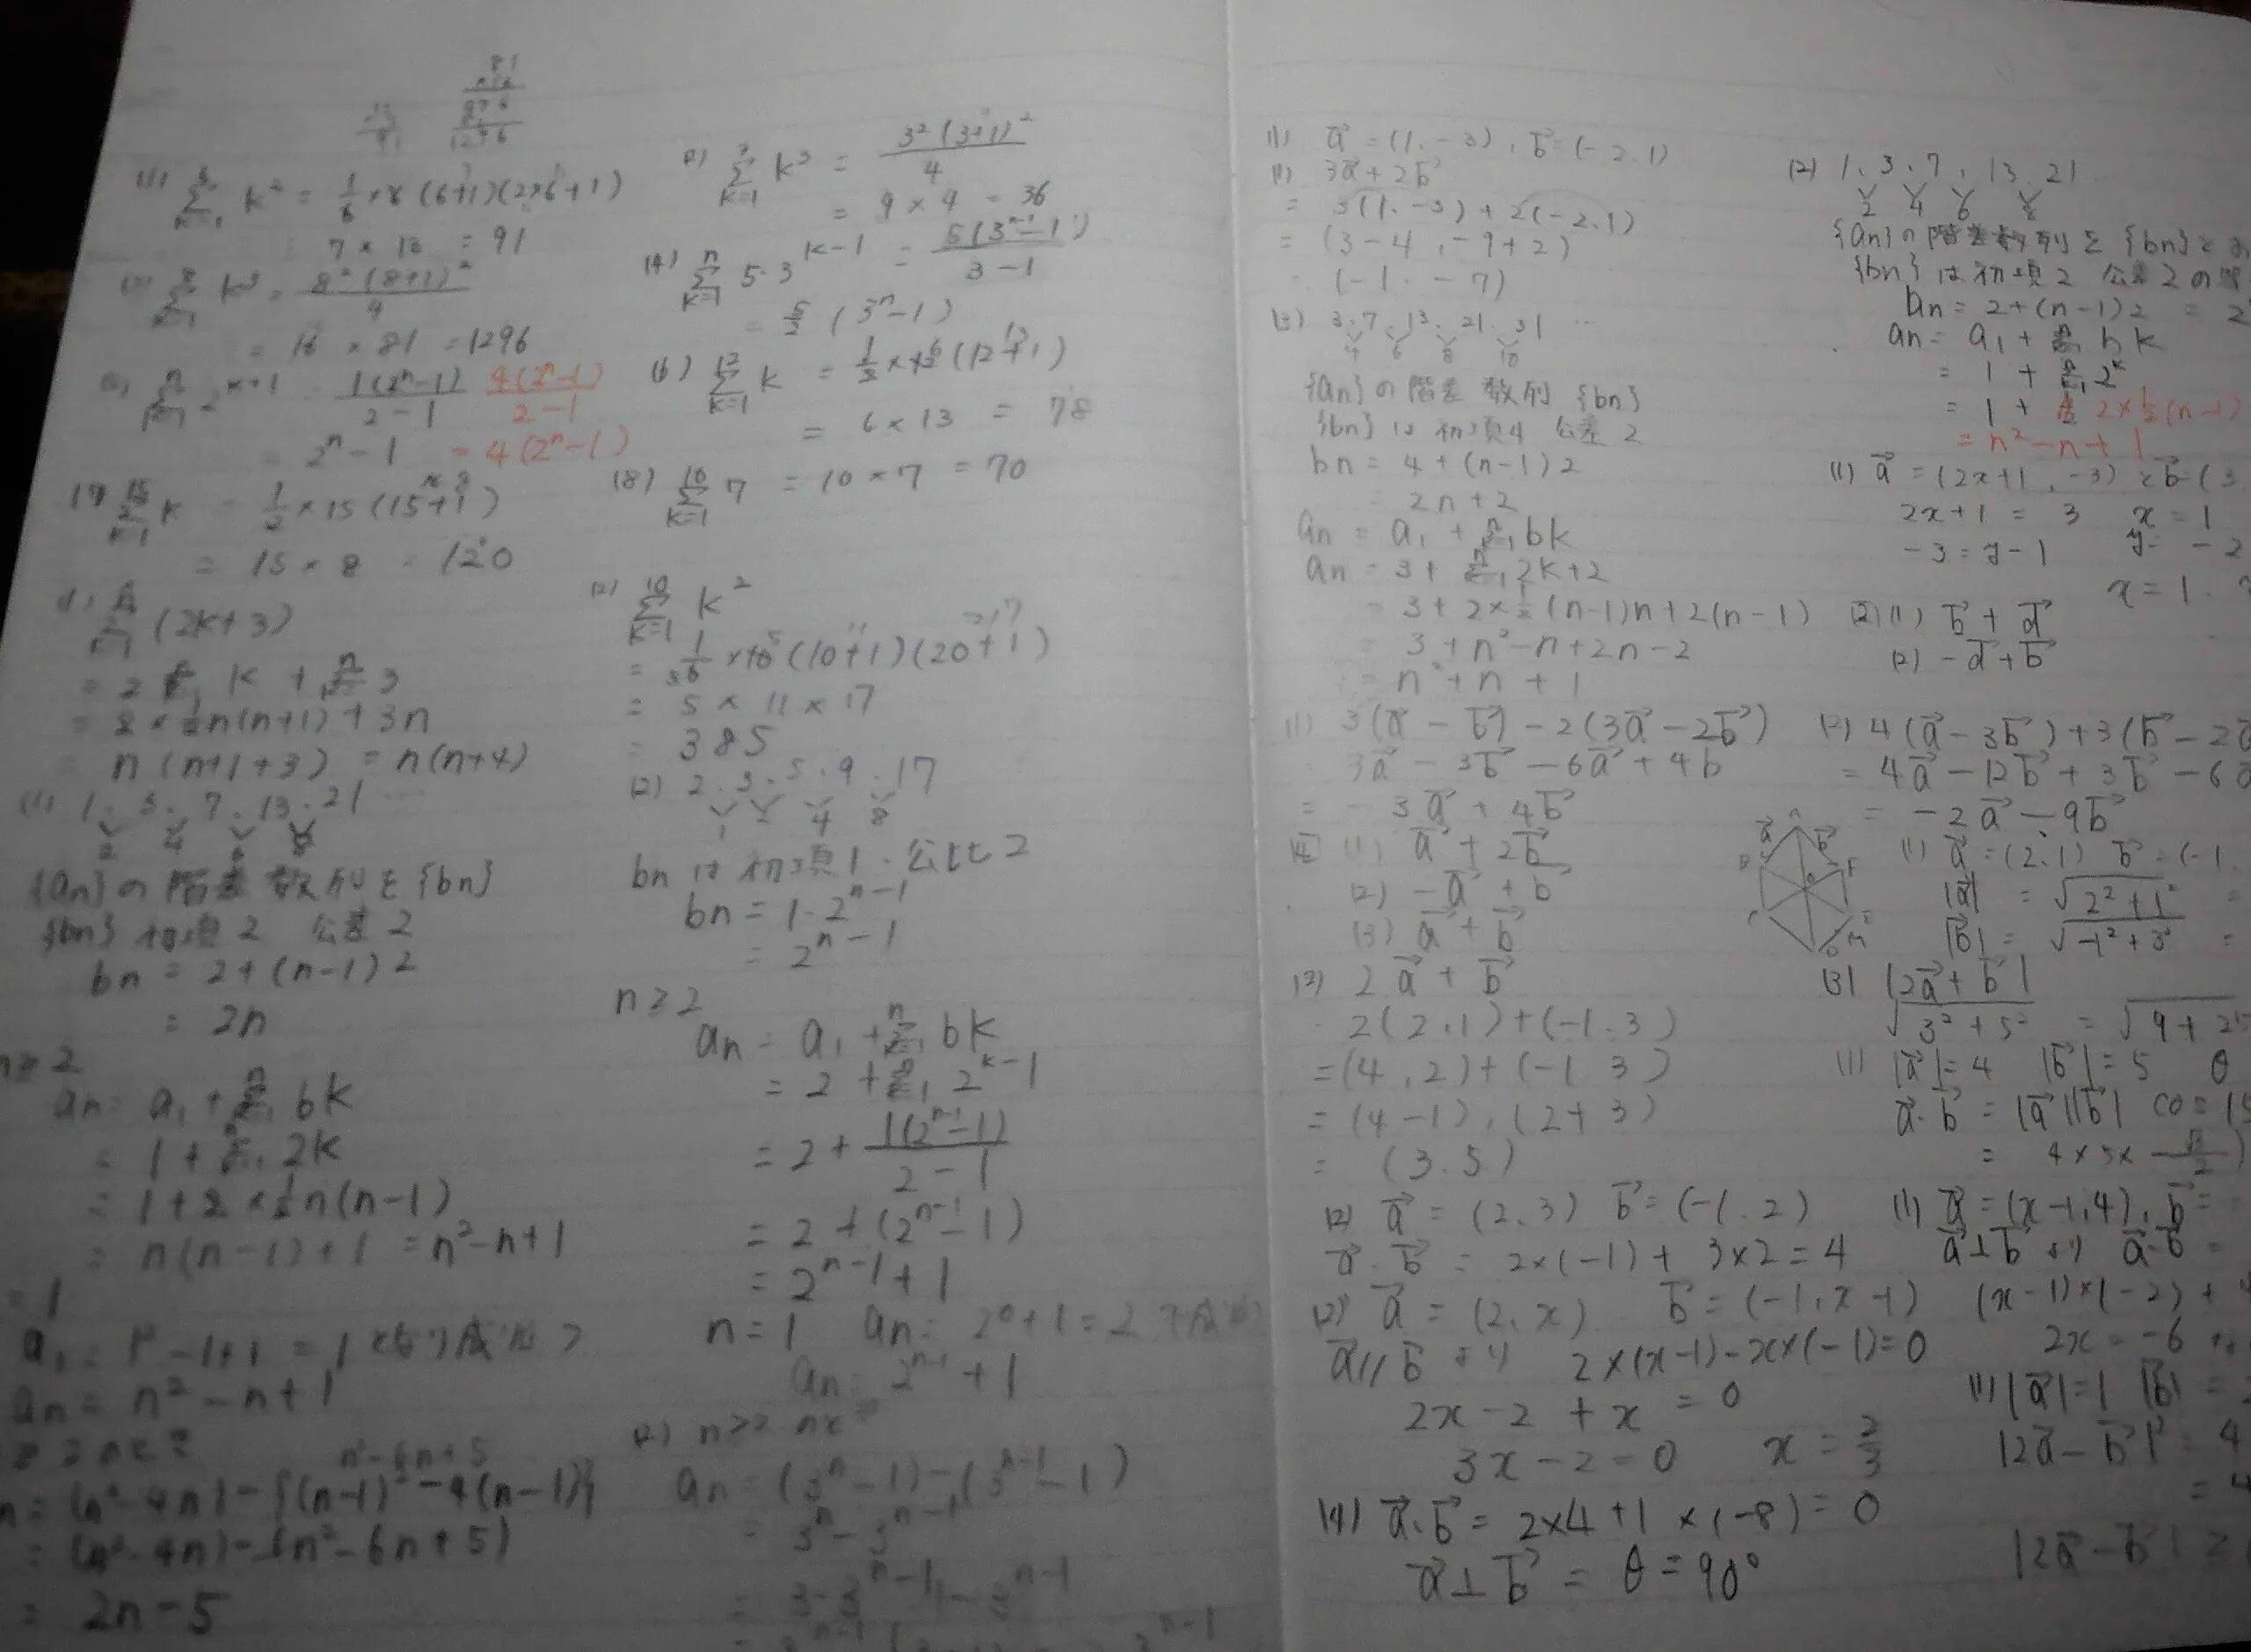 81
1296
91
(1) Σ k=1 6 k² = 1/6 × 6 (6+1)(2×6+1)
7 × 13 = 91
Σ k=1 8 k³ = 8²(8+1)²/4
= 16 × 81 = 1296
2^n - 1 = 4(2^n-1)
1(2^n-1)/2-1 4(2^n-1)/2-1
Σ 15 k = 1/2 × 15 (15+1)
= 15 × 8 = 120
(2k+3)
= 2 Σ k + Σ 3
= 2 × 1/2 n(n+1) + 3n
= n(n+1+3) = n(n+4)
(1) 1. 3. 7. 13. 21 ...
2 4 6 8
{an}の階差数列を{bn}
{bn} 初項2 公差2
bn = 2+(n-1)2
= 2n
n≥2
an = a1 + Σ bk
= 1 + Σ 2k
= 1 + 2 × 1/2 n(n-1)
= n(n-1)+1 = n²-n+1
= 1
a1 = 1²-1+1 = 1
an = n²-n+1
n²-6n+5
= (n²-4n) - {(n-1)²-4(n-1)}
= (n²-4n)-(n²-6n+5)
= 2n-5
(2) Σ k=1 3 k³ = 3²(3+1)²/4
= 9 × 4 = 36
(4) Σ k=1 n 5·3^k-1 = 5(3^n-1)/3-1
= 5/2 (3^n-1)
(6) Σ k=1 12 k = 1/2 × 12 (12+1)
= 6 × 13 = 78
(8) Σ k=1 10 7 = 10×7 = 70
(2) Σ k=1 10 k²
= 1/6 × 10 (10+1)(20+1)
= 5 × 11 × 17
= 385
(2) 2. 3. 5. 9. 17
1 2 4 8
bnは初項1. 公比2
bn = 1·2^n-1
= 2^n-1
n≥2
an = a1 + Σ bk
= 2 + Σ 2^k-1
= 2 + 1(2^n-1 -1)/2-1
= 2 + (2^n-1 -1)
= 2^n-1 +1
n=1 an = 2^0+1=2
an = 2^n-1 +1
(2) n≥2
an = (3^n-1)-(3^n-1 -1)
= 3^n-3^n-1
= 3·3^n-1 - 3^n-1
(1) a→ = (1. -3), b→ = (-2.1)
(1) 3a→+2b→
= 3(1. -3)+2(-2.1)
= (3-4, -9+2)
(-1. -7)
(3) 3. 7. 13. 21. 31 ...
4 6 8 10
{an}の階差数列{bn}
{bn}は初項4 公差2
bn = 4+(n-1)2
2n+2
an = a1 + Σ bk
an = 3 + Σ 2k+2
= 3+2×1/2(n-1)n+2(n-1)
= 3+n²-n+2n-2
= n²+n+1
(1) 3(a→-b→)-2(3a→-2b→)
3a→-3b→-6a→+4b
= -3a→+4b→
(1) a→+2b→
(2) -a→+b→
(3) a→+b→
(2) 2a→+b→
2(2.1)+(-1.3)
= (4,2)+(-1 3)
= (4-1),(2+3)
= (3.5)
(2) a→=(2,3) b→=(-1.2)
a→·b→ = 2×(-1)+3×2=4
(2) a→=(2,x) b→=(-1,x-1)
a→//b→より 2×(x-1)-x×(-1)=0
2x-2+x=0
3x-2=0 x=2/3
(4) a→·b→=2×4+1×(-8)=0
a→⊥b→ = θ=90°
(2) 1. 3. 7, 13. 21
2 4 6 8
{an}の階差数列を{bn}と
{bn}は初項2 公差2の
an=2+(n-1)2 = 2
an = a1 + Σ bk
= 1 + Σ 2k
= 1 + 2×1/2(n-1)
= n²-n+1
(1) a→=(2x+1,-3) b→(3
2x+1=3 x=1
-3=y-1 y=-2
x=1.
(2)(1) b→+a→
(2) -a→+b→
(2) 4(a→-3b→)+3(b→-2a
= 4a→-12b→+3b→-6a
= -2a→-9b→
(1) a→=(2.1) b→=(-1.
|a→| = √2²+1² =
|b→| = √-1²+3² =
(3) |2a→+b→|
√3²+5² = √9+25
(1) |a→|=4 |b→|=5 θ
a→·b→=|a→||b→| cos
= 4×5×
(1) a→=(x-1,4), b→=
a→⊥b→より a→·b→=
(x-1)×(-2)+
2x=-6
(1) |a→|=1 |b→|=
|2a→-b→|²=4
=4
|2a→-b→|